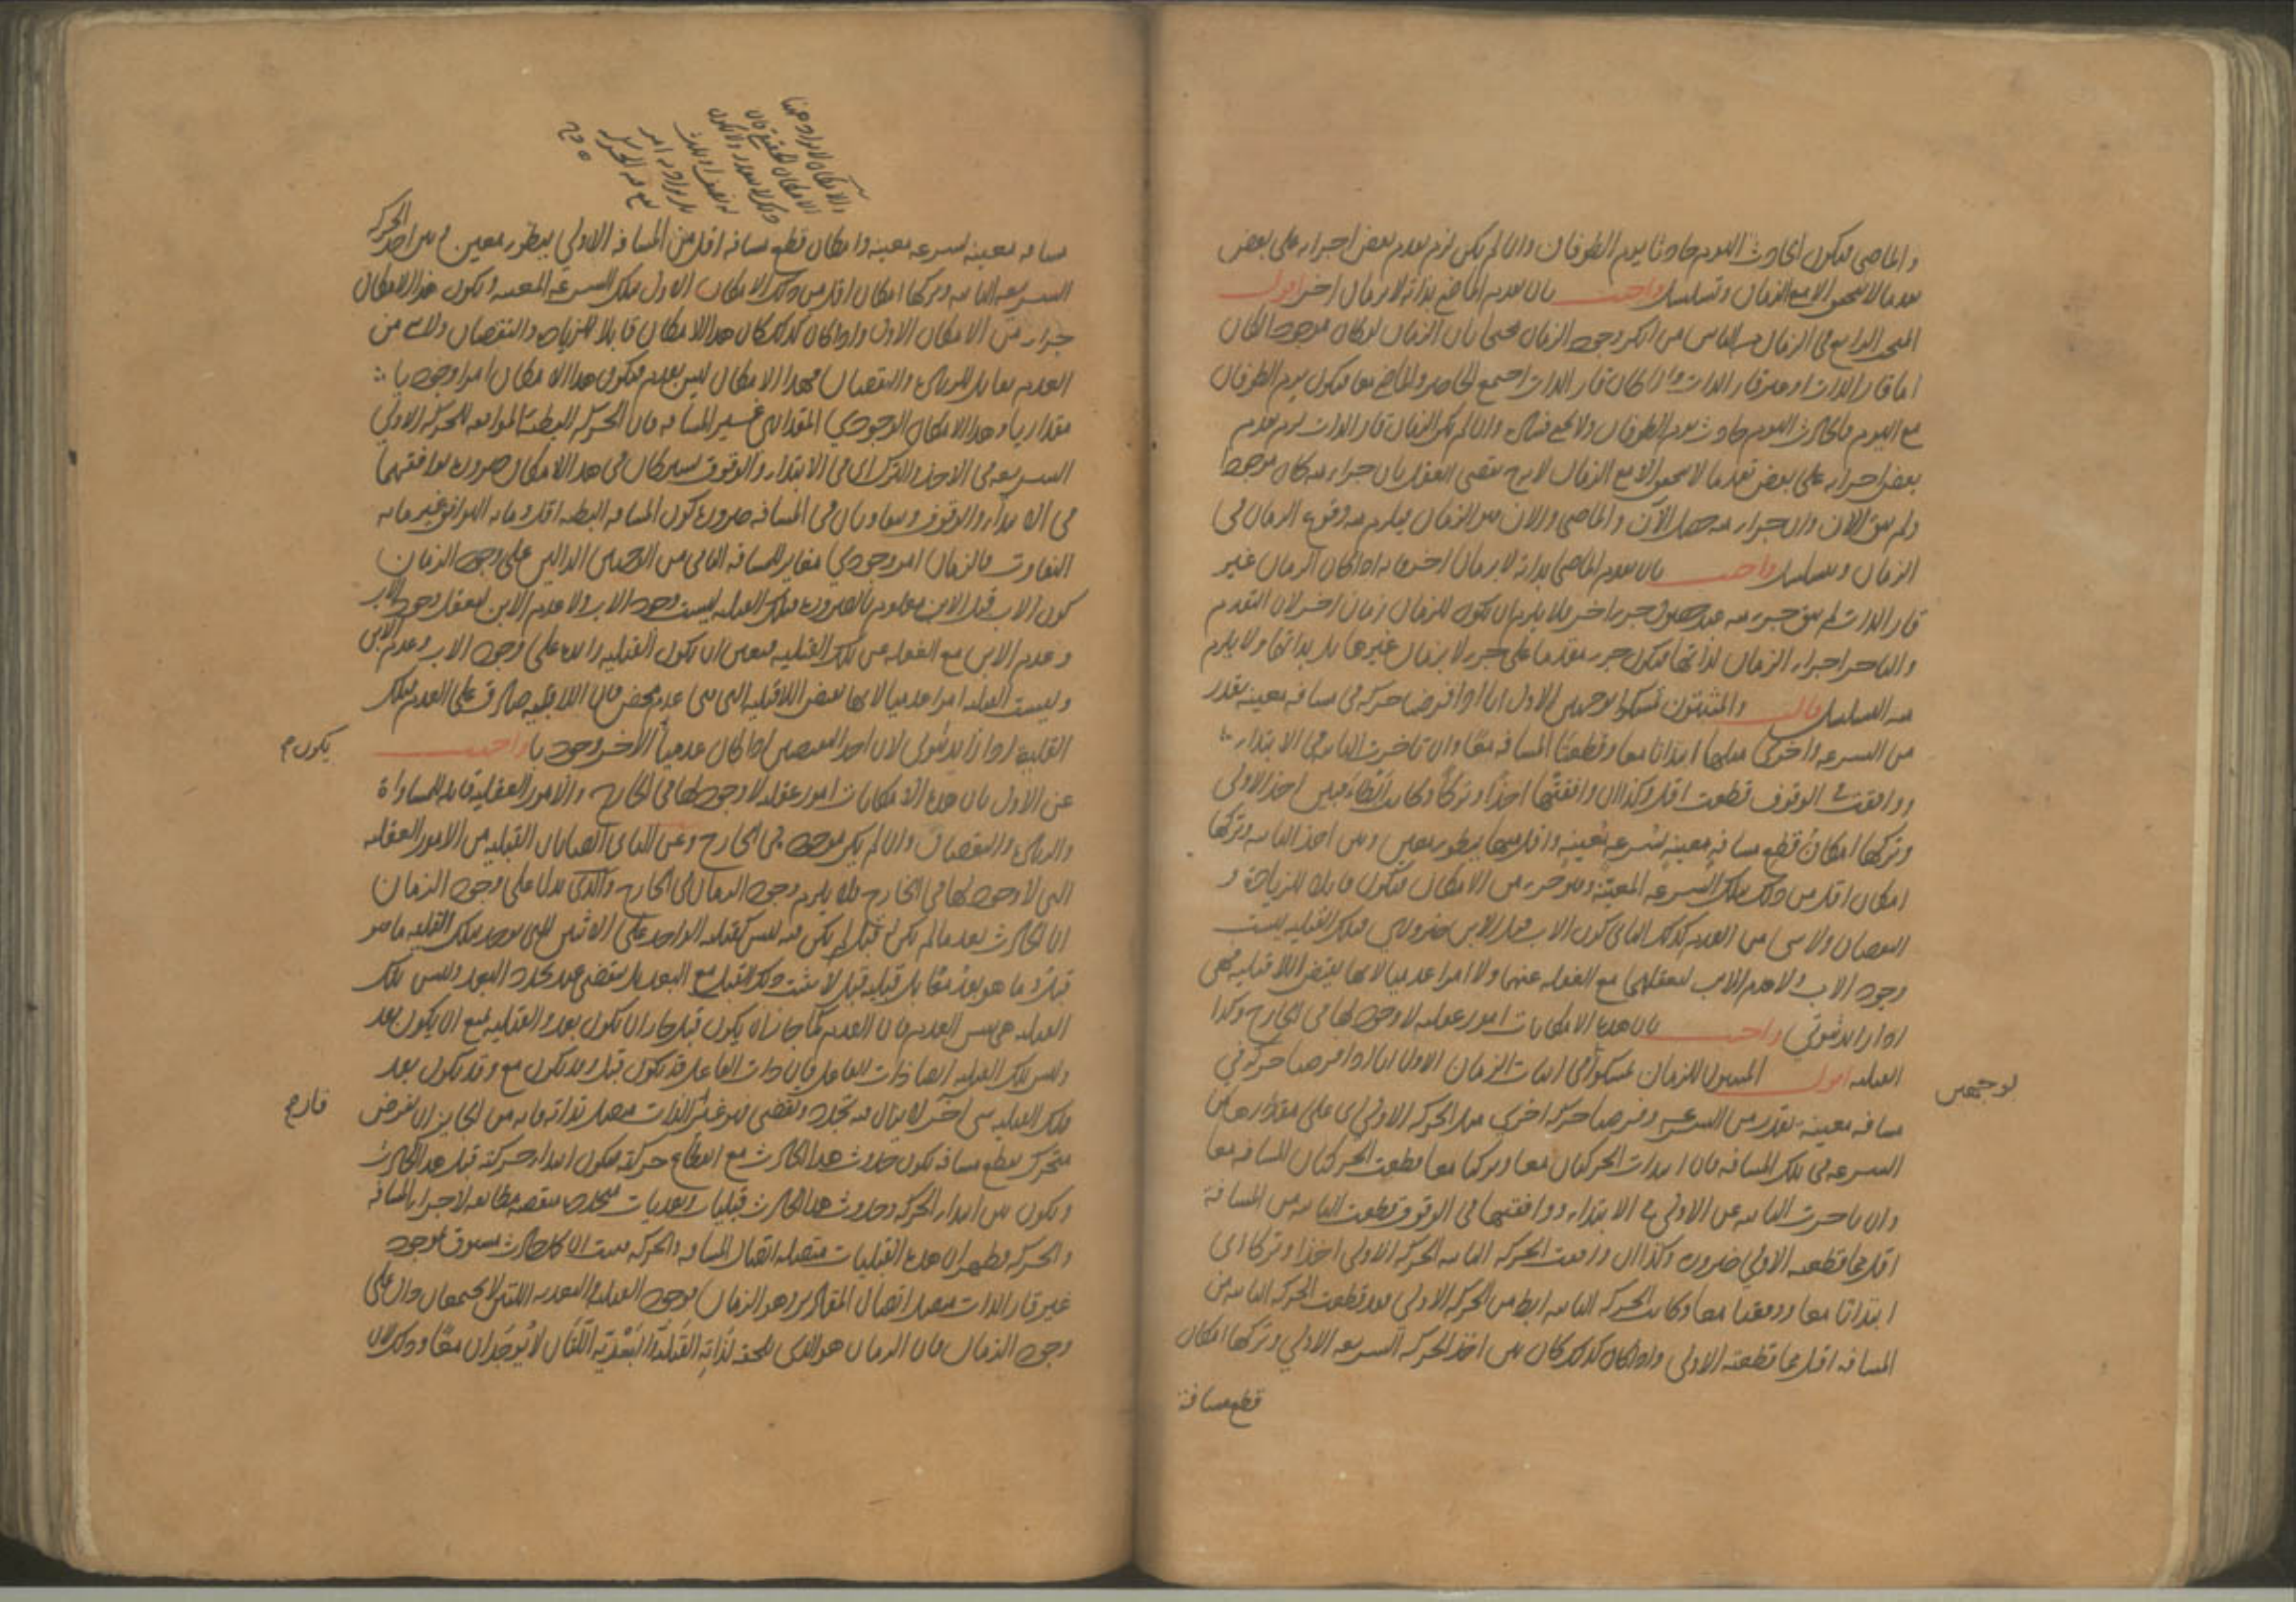 والماضي فيكون الحادث اليوم حادثا يوم الطوفان وان لم يكن لزم تقدم بعض اجزائه على بعض
تقدما لا يتحقق الا مع الزمان وتسلسل واجيب بان تقدم الماضي بذاته لا بزمان اخر اقول
المبحث الرابع في الزمان من الناس من انكر وجود الزمان محتجا بان الزمان لو كان موجودا لكان
اما قار الذات او غير قار الذات واذا كان قار الذات اجتمع الحاضر والماضي معا فيكون يوم الطوفان
مع اليوم والحادث اليوم حادث يوم الطوفان ولا يخفى فساده وان لم يكن الزمان قار الذات لزم تقدم
بعض اجزائه على بعض تقدما لا يتحقق الا مع الزمان لانه ح يقتضي العقل بان جزءا منه كان موجودا
ولم يبق الان وان جزءا منه حصل الآن والماضي والان هو الزمان فيلزم منه وقوع الزمان في
الزمان وتسلسل واجيب بان تقدم الماضي بذاته لا بزمان اخر فانه اذا كان الزمان غير
قار الذات لم يبق جزء منه عند حصول جزء اخر فلا يلزم ان يكون للزمان زمان اخر لان التقدم
والتاخر لاجزاء الزمان لذاتها فيكون جزء متقدما على جزء لا بزمان غيرها بل بذاتها ولا يلزم
منه التسلسل قال والمثبتون تمسكوا بوجهين الاول انا اذا فرضنا حركة في مسافة معينة بقدر
من السرعة واخرى مثلها ابتداتا معا وقطعتا المسافة معا وان تاخرت الثانية في الابتداء
ووافقت في الوقوف قطعت اقل وكذا ان وافقتها اخذا وتركا وكانت ابطأ فبين اخذ الاولى
وتركها امكان قطع مسافة معينة بسرعة معينة واقل منها ببطؤ معين وبين اخذ الثانية وتركها
امكان اقل من ذلك بتلك السرعة المعينة وهو جزء من الامكان فيكون قابلا للزيادة و
النقصان ولا شيء من العدم كذلك الثاني كون الاب قبل الابن ضروري وتلك القبلية ليست
وجود الاب ولا عدم الابن لتعقلهما مع الغفلة عنها ولا امرا عدميا لانها نقيض اللاقبلية فهي
اذا زائد ثبوتي واجيب بان هذه الامكانات امور عقلية لا وجود لها في الخارج وكذا
القبلية اقول المثبتون للزمان تمسكوا في اثبات الزمان الاول انا اذا فرضنا حركة في
لوجهين
مسافة معينة بقدر من السرعة وفرضنا حركة اخرى مثل الحركة الاولى اى على مقدارها من
السرعة في تلك المسافة فان ابتدات الحركتان معا وتركتا معا قطعت الحركتان المسافة معا
وان تاخرت الثانية عن الاولى في الابتداء ووافقتها في الوقوف قطعت الثانية من المسافة
اقل مما قطعته الاولى ضرورة وكذا ان وافقت الحركة الثانية الحركة الاولى اخذا وتركا اى
ابتداتا معا ووقفتا معا وكانت الحركة الثانية ابطأ من الحركة الاولى فقد قطعت الحركة الثانية من
المسافة اقل مما قطعته الاولى واذا كان كذلك كان بين اخذ الحركة السريعة الاولى وتركها امكان
قطع مسافة
والامكان لا يراد ههنا
الامكان الحقيقي فان
ذلك لا يتقدر ولا يكون
بل يراد به امر
مسافة معينة بسرعة معينة وامكان قطع مسافة اقل من المسافة الاولى ببطؤ معين وبين اخذ الحركة
السريعة الثانية وتركها امكان اقل من ذلك الامكان الاول بتلك السرعة المعينة ويكون هذا الامكان
جزءا من الامكان الاول واذا كان كذلك كان هذا الامكان قابلا للزيادة والنقصان ولا شيء من
العدم بقابل للزيادة والنقصان فهذا الامكان ليس بعدم فيكون هذا الامكان امرا وجوديا
مقداريا وهذا الامكان الوجودي المقداري غير المسافة فان الحركة البطيئة الموافقة للحركة الاولى
السريعة في الاخذ والترك اى في الابتداء والوقوف تشتركان في هذا الامكان ضرورة توافقهما
في الابتداء والوقوف وتتفاوتان في المسافة ضرورة كون المسافة البطيئة اقل وما به التوافق غير ما به
التفاوت فالزمان امر وجودي مغاير للمسافة الثاني من الوجهين الدالين على وجود الزمان
كون الاب قبل الابن معلوم بالضرورة وتلك القبلية ليست وجود الاب ولا عدم الابن لتعقل وجود الاب
وعدم الابن مع الغفلة عن تلك القبلية فتعين ان يكون القبلية زائدة على وجود الاب وعدم الابن
وليست القبلية امرا عدميا لانها نقيض اللاقبلية التي هي عدم محض فان اللاقبلية صادق على العدم فتلك
القبلية اذا زائد ثبوتي لان احد النقيضين اذا كان عدميا الاخر وجوديا واجيب
يكون
عن الاول بان هذه الامكانات امور عقلية لا وجود لها في الخارج والامور العقلية قابلة للمساواة
والزيادة والنقصان وان لم يكن موجودة في الخارج وعن الثاني ايضا بان القبلية من الامور العقلية
التي لا وجود لها في الخارج فلا يلزم وجود الزمان في الخارج والذي يدل على وجود الزمان
ان الحادث بعد ما لم يكن له قبل لم يكن فيه ليس كقبلية الواحد على الاثنين التي يوجد بتلك القبلية ما هو
قبل وما هو بعد معا بل قبلية قبل لا يثبت ذلك القبل مع البعد بل ينقضي عند تجدد البعد وليس تلك
القبلية هي نفس العدم فان العدم كما جاز ان يكون قبل جاز ان يكون بعد والقبلية يمتنع ان يكون بعد
وليس تلك القبلية ايضا ذات الفاعل فان ذات الفاعل قد يكون قبل وقد يكون مع وقد تكون بعد
فتلك القبلية شى آخر لا يزال فيه تجدد وتقضى فهو غير الذات متصل بذاته فانه من الجايز ان نفرض
قار
متحرك يقطع مسافة يكون حدوث هذا الحادث مع انقطاع حركته فيكون ابتداء حركته قبل هذا الحادث
ويكون بين ابتداء الحركة وحدوث هذا الحادث قبليات وبعديات متجددة منقضية مطابقة لاجزاء المسافة
والحركة فظهر ان هذه القبليات متصلة اتصال المسافة والحركة فثبت ان كل حادث مسبوق بوجود
غير قار الذات متصل اتصال المقادير وهو الزمان فوجود القبلية والبعدية اللتين لا يجتمعان دال على
وجود الزمان فان الزمان هو الذي يلحقه لذاته القبلية والبعدية اللتان لا يوجدان معا وذلك لان